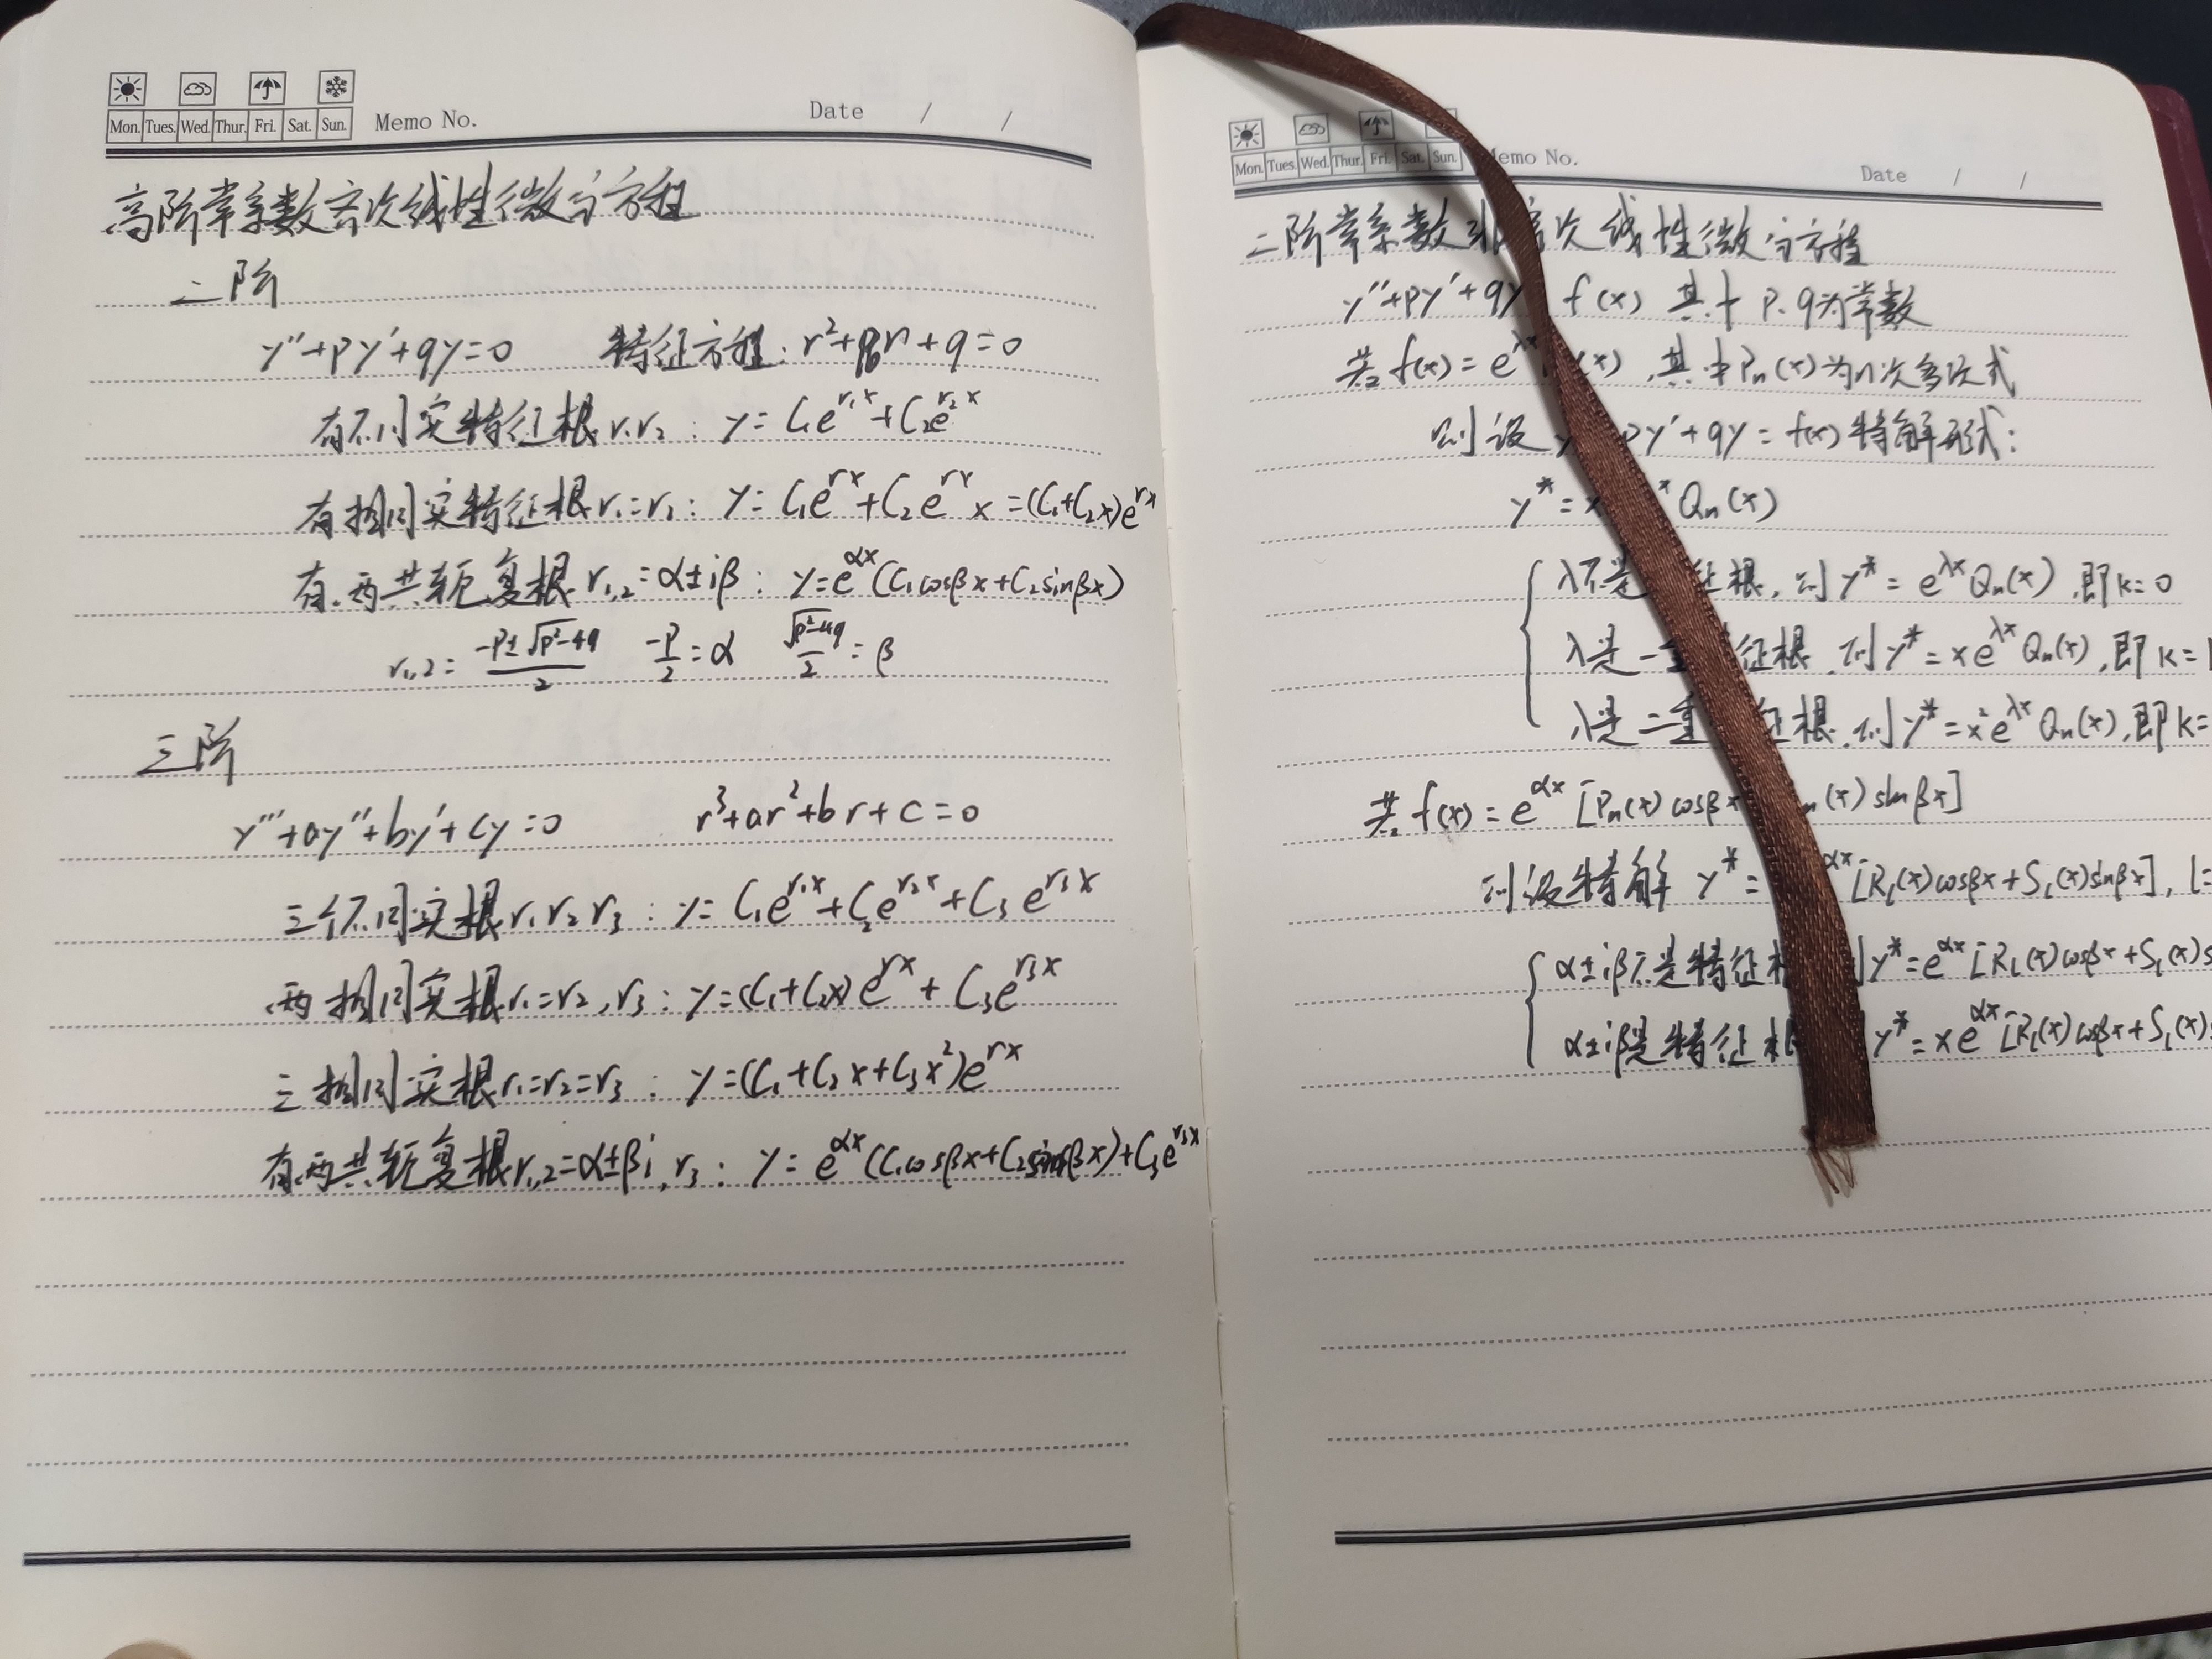 Mon. Tues. Wed. Thur. Fri. Sat. Sun. Memo No. Date / /
高阶常系数齐次线性微分方程
二阶
y''+py'+qy=0 特征方程: r²+pr+q=0
有不同实特征根r₁r₂: y=C₁e^{r₁x}+C₂e^{r₂x}
有相同实特征根r₁=r₂: y=C₁e^{rx}+C₂e^{rx}x=(C₁+C₂x)e^{rx}
有两共轭复根r₁,₂=α±iβ: y=e^{αx}(C₁cosβx+C₂sinβx)
r₁,₂=(-p±√(p²-4q))/2 -p/2=α √(p²-4q)/2=β
三阶
y'''+ay''+by'+cy=0 r³+ar²+br+c=0
三个不同实根r₁r₂r₃: y=C₁e^{r₁x}+C₂e^{r₂x}+C₃e^{r₃x}
两相同实根r₁=r₂,r₃: y=(C₁+C₂x)e^{rx}+C₃e^{r₃x}
三相同实根r₁=r₂=r₃: y=(C₁+C₂x+C₃x²)e^{rx}
有两共轭复根r₁,₂=α±βi,r₃: y=e^{αx}(C₁cosβx+C₂sinβx)+C₃e^{r₃x}
Mon. Tues. Wed. Thur. Fri. Sat. Sun. Memo No. Date / /
二阶常系数非齐次线性微分方程
y''+py'+qy f(x) 其中 p.q为常数
若f(x)=e^{λx} (x),其中Pₙ(x)为n次多项式
则设y py'+qy=f(x)特解形式:
y*=x Qₙ(x)
λ不是 征根,则y*=e^{λx}Qₙ(x),即k=0
λ是一重 征根,则y*=xe^{λx}Qₙ(x),即k=1
λ是二重 征根,则y*=x²e^{λx}Qₙ(x),即k=
若f(x)=e^{αx}[Pₙ(x)cosβx (x)sinβx]
则设特解 y*= ^{αx}[R_l(x)cosβx+S_l(x)sinβx], l=
α±iβ不是特征根 y*=e^{αx}[R_l(x)cosβx+S_l(x)s
α±iβ是特征根 y*=xe^{αx}[R_l(x)cosβx+S_l(x)